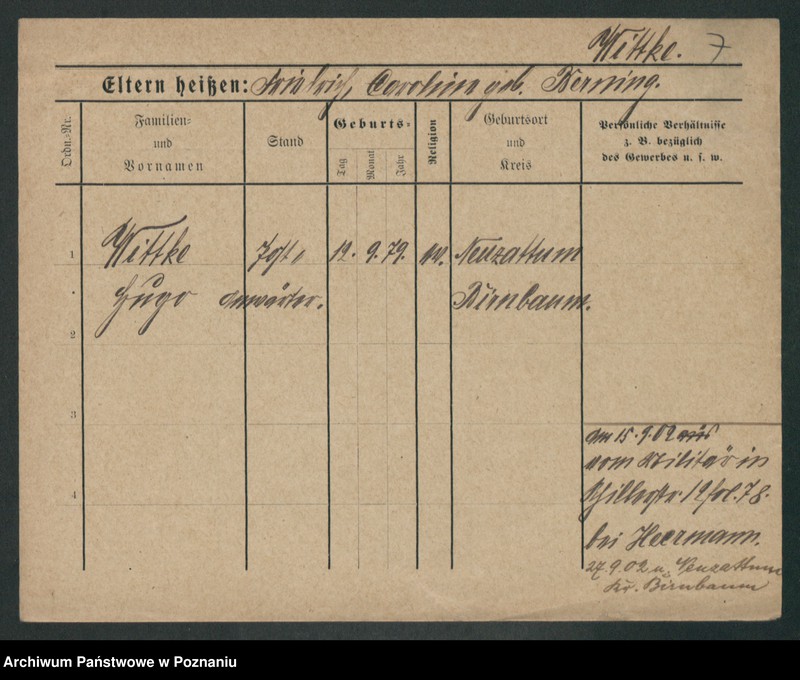 Wittke. 7
Eltern heißen: Friedrich, Caroline geb. Berning.
Ordn.-Nr.
Familien-
und
Vornamen
Stand
Geburts-
Tag
Monat
Jahr
Religion
Geburtsort
und
Kreis
Persönliche Verhältnisse
z. B. bezüglich
des Gewerbes u. s. w.
1 Wittke 12. 9. 79. Neuzattum
Hugo anwärter. Birnbaum.
2
3
4
am 15.9.02 aus
vom Militär in
Schillerstr. 12 fol. 78.
bei Heermann.
27.9.02 n. Neuzattum
Kr. Birnbaum
Archiwum Państwowe w Poznaniu